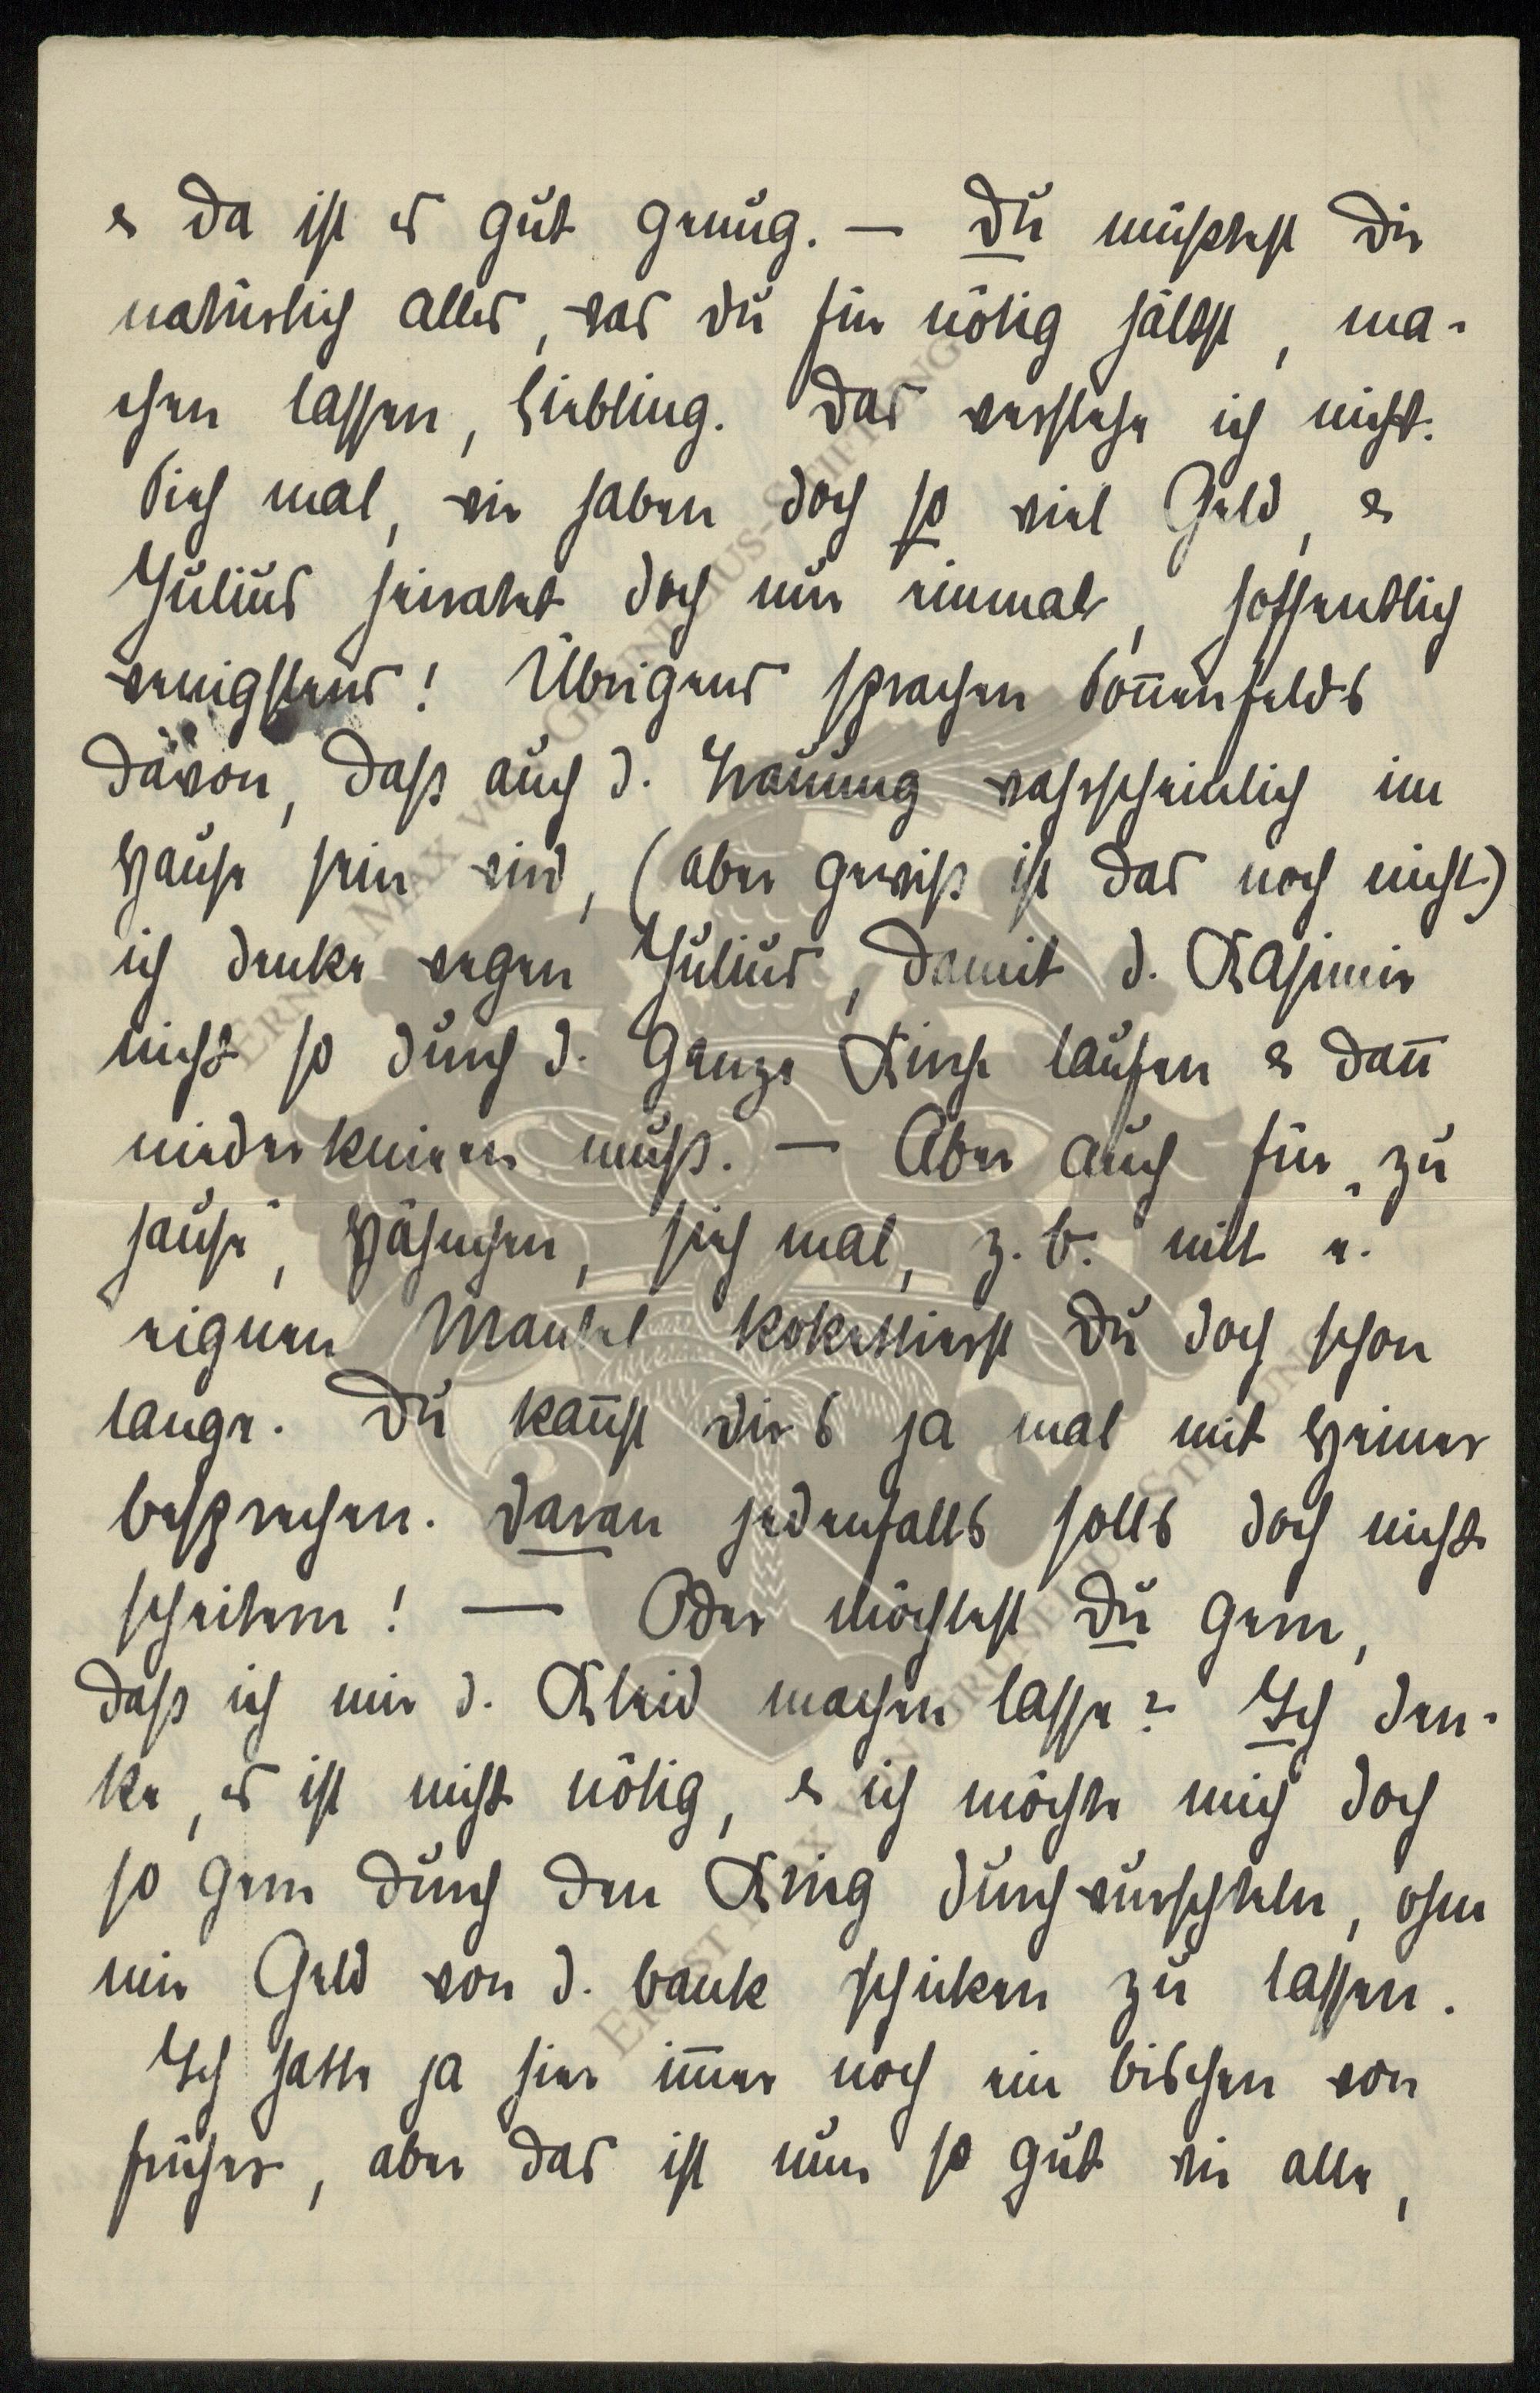 & da ist es gut genug. — Du müßtest Dir
natürlich alles, was du für nötig hältst, ma-
chen lassen, Liebling. Das verstehe ich nicht.
Sieh mal, wir haben doch so viel Geld, &
Julius heiratet doch nur einmal, hoffentlich
wenigstens! Übrigens sprachen Son̄enfelds
davon, daß auch d. Trauung wahrscheinlich im
Hause sein wird, (aber gewiß ist das noch nicht.)
ich denke wegen Julius, damit d. Kasimir
nicht so durch d. ganze Kirche laufen & dan̄
niederknieen muß. — Aber auch für „zu
hause", Hähnchen, sieh mal, z. b. mit e.
eignen Mantel kokettierst Du doch schon
lange. Du kan̄st dirs ja mal mit Heiner
besprechen. Daran jedenfalls solls doch nicht
scheitern! — Oder möchtest Du gern,
daß ich mir d. Kleid machen lasse? Ich den-
ke, es ist nicht nötig, & ich möchte mich doch
so gern durch den Krieg durchwurschteln, ohne
mir Geld von d. bank schicken zu lassen.
Ich hatte ja hier im̄er noch ein bischen von
früher, aber das ist nun so gut wie alle,
ERNST MAX VON GRUNELIUS-STIFTUNG
ERNST MAX VON GRUNELIUS-STIFTUNG